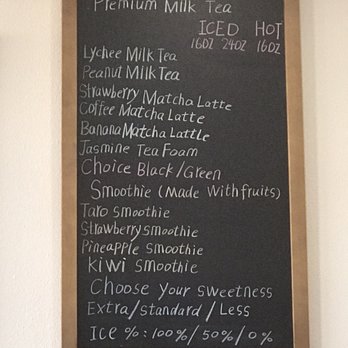 Premium Milk Tea
ICED HOT
16OZ 24OZ 16OZ
Lychee Milk Tea
Peanut Milk Tea
Strawberry Matcha Latte
Coffee Matcha Latte
Banana Matcha Lattle
Jasmine Tea Foam
Choice Black/Green
Smoothie (Made With fruits)
Taro smoothie
Strawberry smoothie
Pineapple Smoothie
Kiwi Smoothie
Choose Your sweetness
Extra/standard/Less
Ice %: 100%/50%/0%